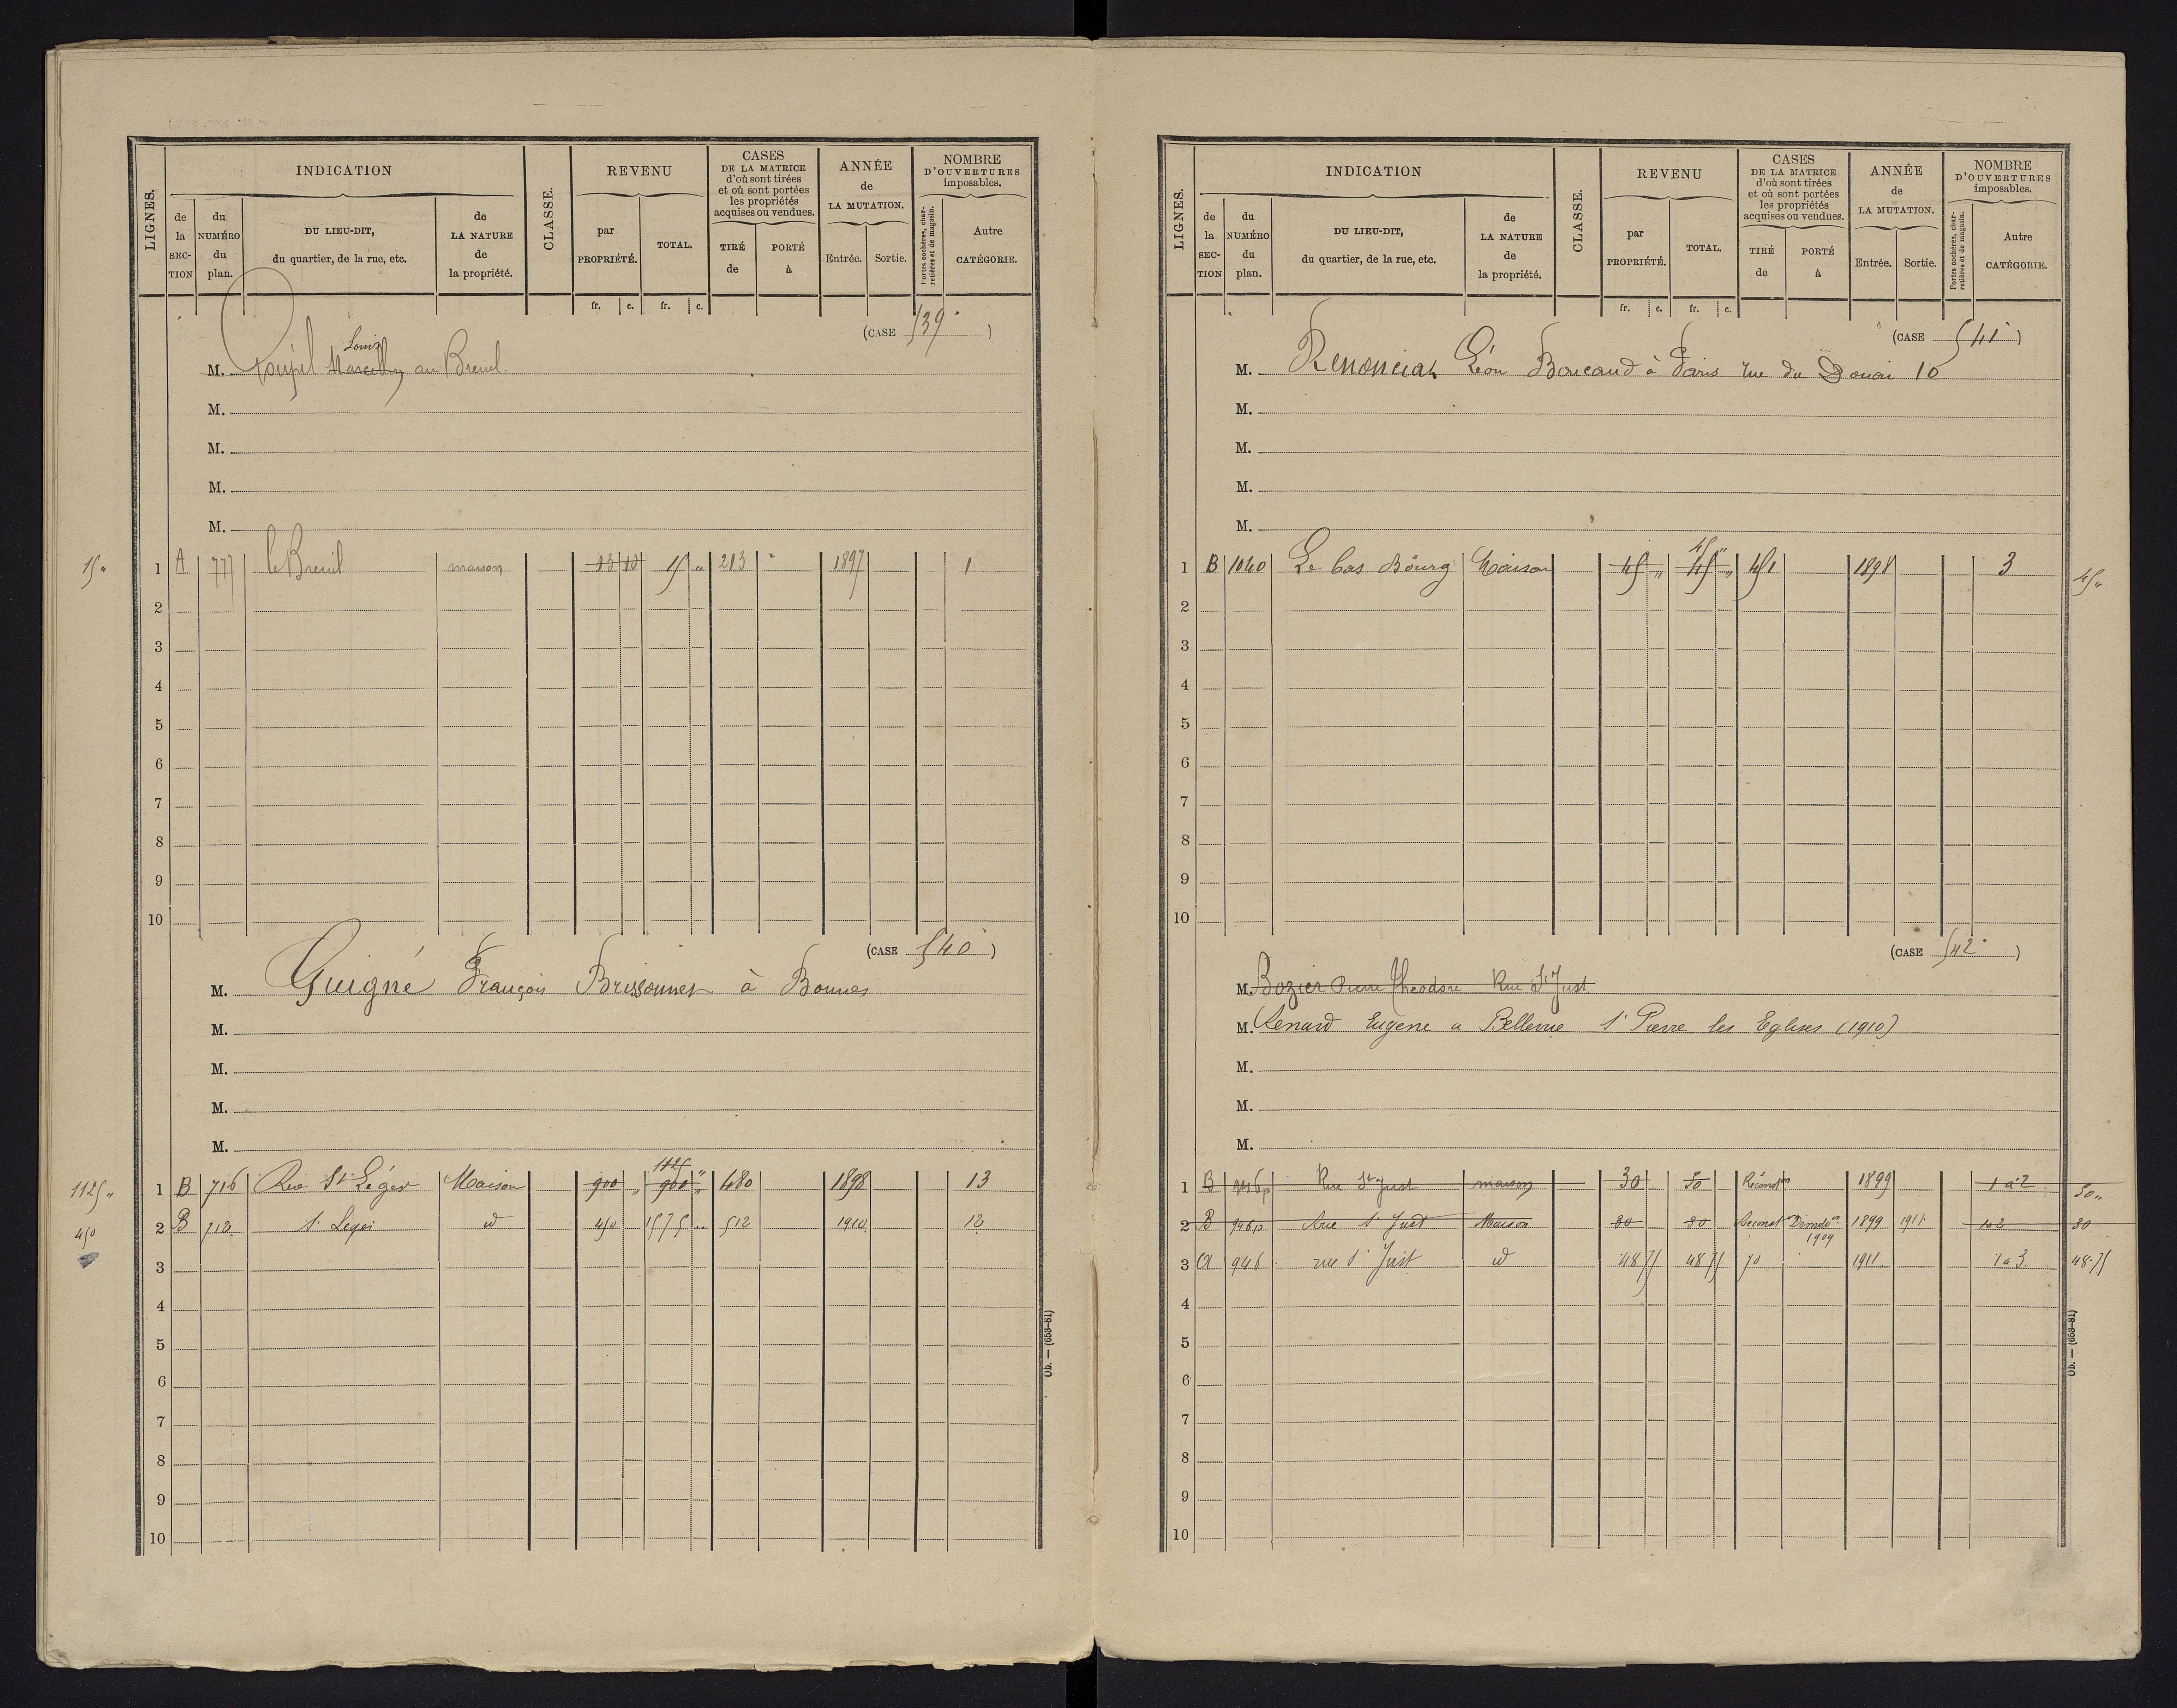 LIGNES.
INDICATION
de la SECTION
du NUMÉRO du plan.
DU LIEU-DIT, du quartier, de la rue, etc.
de LA NATURE de la propriété.
CLASSE.
REVENU
par PROPRIÉTÉ.
TOTAL.
CASES DE LA MATRICE d'où sont tirées et où sont portées les propriétés acquises ou vendues.
TIRÉ de
PORTÉ à
ANNÉE de LA MUTATION.
Entrée.
Sortie.
NOMBRE D'OUVERTURES imposables.
Portes cochères, charretières et de magasin.
Autre CATÉGORIE.
fr. c. fr. c.
(CASE 539)
Louis
M. Coupil Marcelly au Breuil.
M.
M.
M.
M.
15 " 1 A 777 le Breuil maison 13 10 15 " 213 " 1897 1
2
3
4
5
6
7
8
9
10
(CASE 540)
M. Guigné François Brissonnet à Bonnes
M.
M.
M.
M.
1125 "
1125 " 1 B 716 Rue St Léger Maison 900 " 900 " 480 1898 13
450 2 B 712 St Leger id 450 1575 " 512 1910 12
3
4
5
6
7
8
9
10
Ob. — (653-81)
LIGNES.
INDICATION
de la SECTION
du NUMÉRO du plan.
DU LIEU-DIT, du quartier, de la rue, etc.
de LA NATURE de la propriété.
CLASSE.
REVENU
par PROPRIÉTÉ.
TOTAL.
CASES DE LA MATRICE d'où sont tirées et où sont portées les propriétés acquises ou vendues.
TIRÉ de
PORTÉ à
ANNÉE de LA MUTATION.
Entrée.
Sortie.
NOMBRE D'OUVERTURES imposables.
Portes cochères, charretières et de magasin.
Autre CATÉGORIE.
fr. c. fr. c.
(CASE 541)
M. Renonciat Léon Boucaud à Paris rue du Douai 10
M.
M.
M.
M.
45 "
1 B 1040 Le bas Bourg Maison 45 " 45 " 451 1898 3 45 "
2
3
4
5
6
7
8
9
10
(CASE 542)
M. Bozier Pierre Théodore Rue St Just
M. Renard Eugène a Bellevue St Pierre les Eglises (1910)
M.
M.
M.
1 B 946p Rue St Just maison 30 30 Réconston 1899 1 à 2 30 "
2 B 946p Rue St Just Maison 30 30 Reconst Démolon 1909 1899 1911 1 a 2 30
3 a 946 rue St Just id 48 75 48 75 70 1911 1 a 3 48.75
4
5
6
7
8
9
10
Ob. — (653-81)